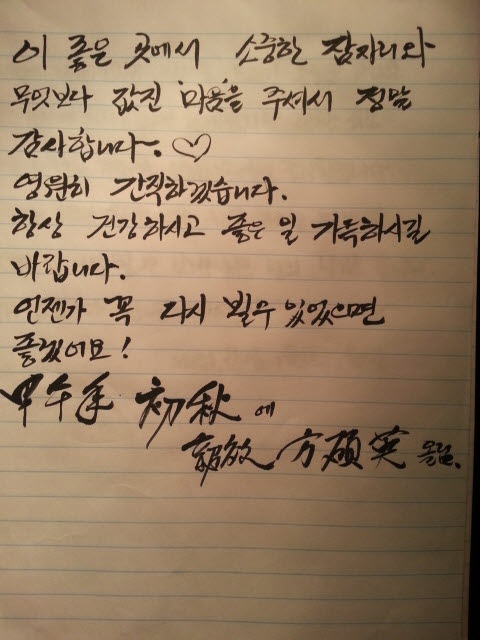 이 좋은 곳에서 소중한 잠자리와
무엇보다 값진 '마음'을 주셔서 정말
감사합니다~. ♡
영원히 간직하겠습니다.
항상 건강하시고 좋은 일 가득하시길
바랍니다.
언젠가 꼭 다시 뵐수 있었으면
좋겠어요!
甲午年 初秋 에
方碩英 올림.